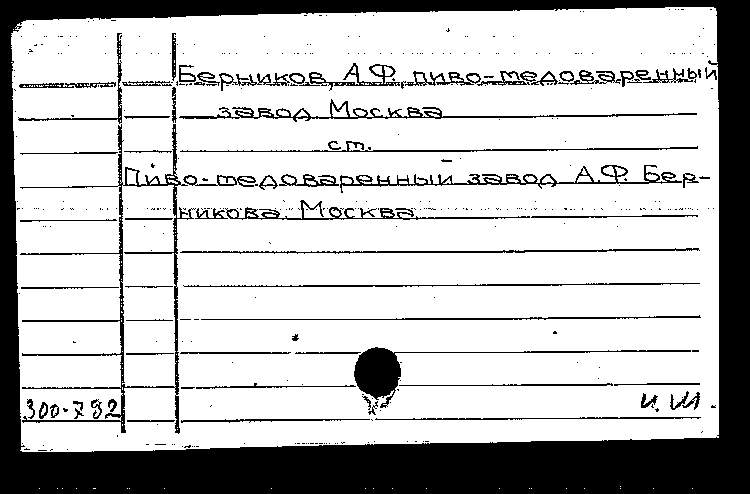 Берников, А.Ф. пиво-медоваренный
завод Москва
ст.
Пиво-медоваренный завод А.Ф. Бер-
никова. Москва.
300-792 И.Ш.